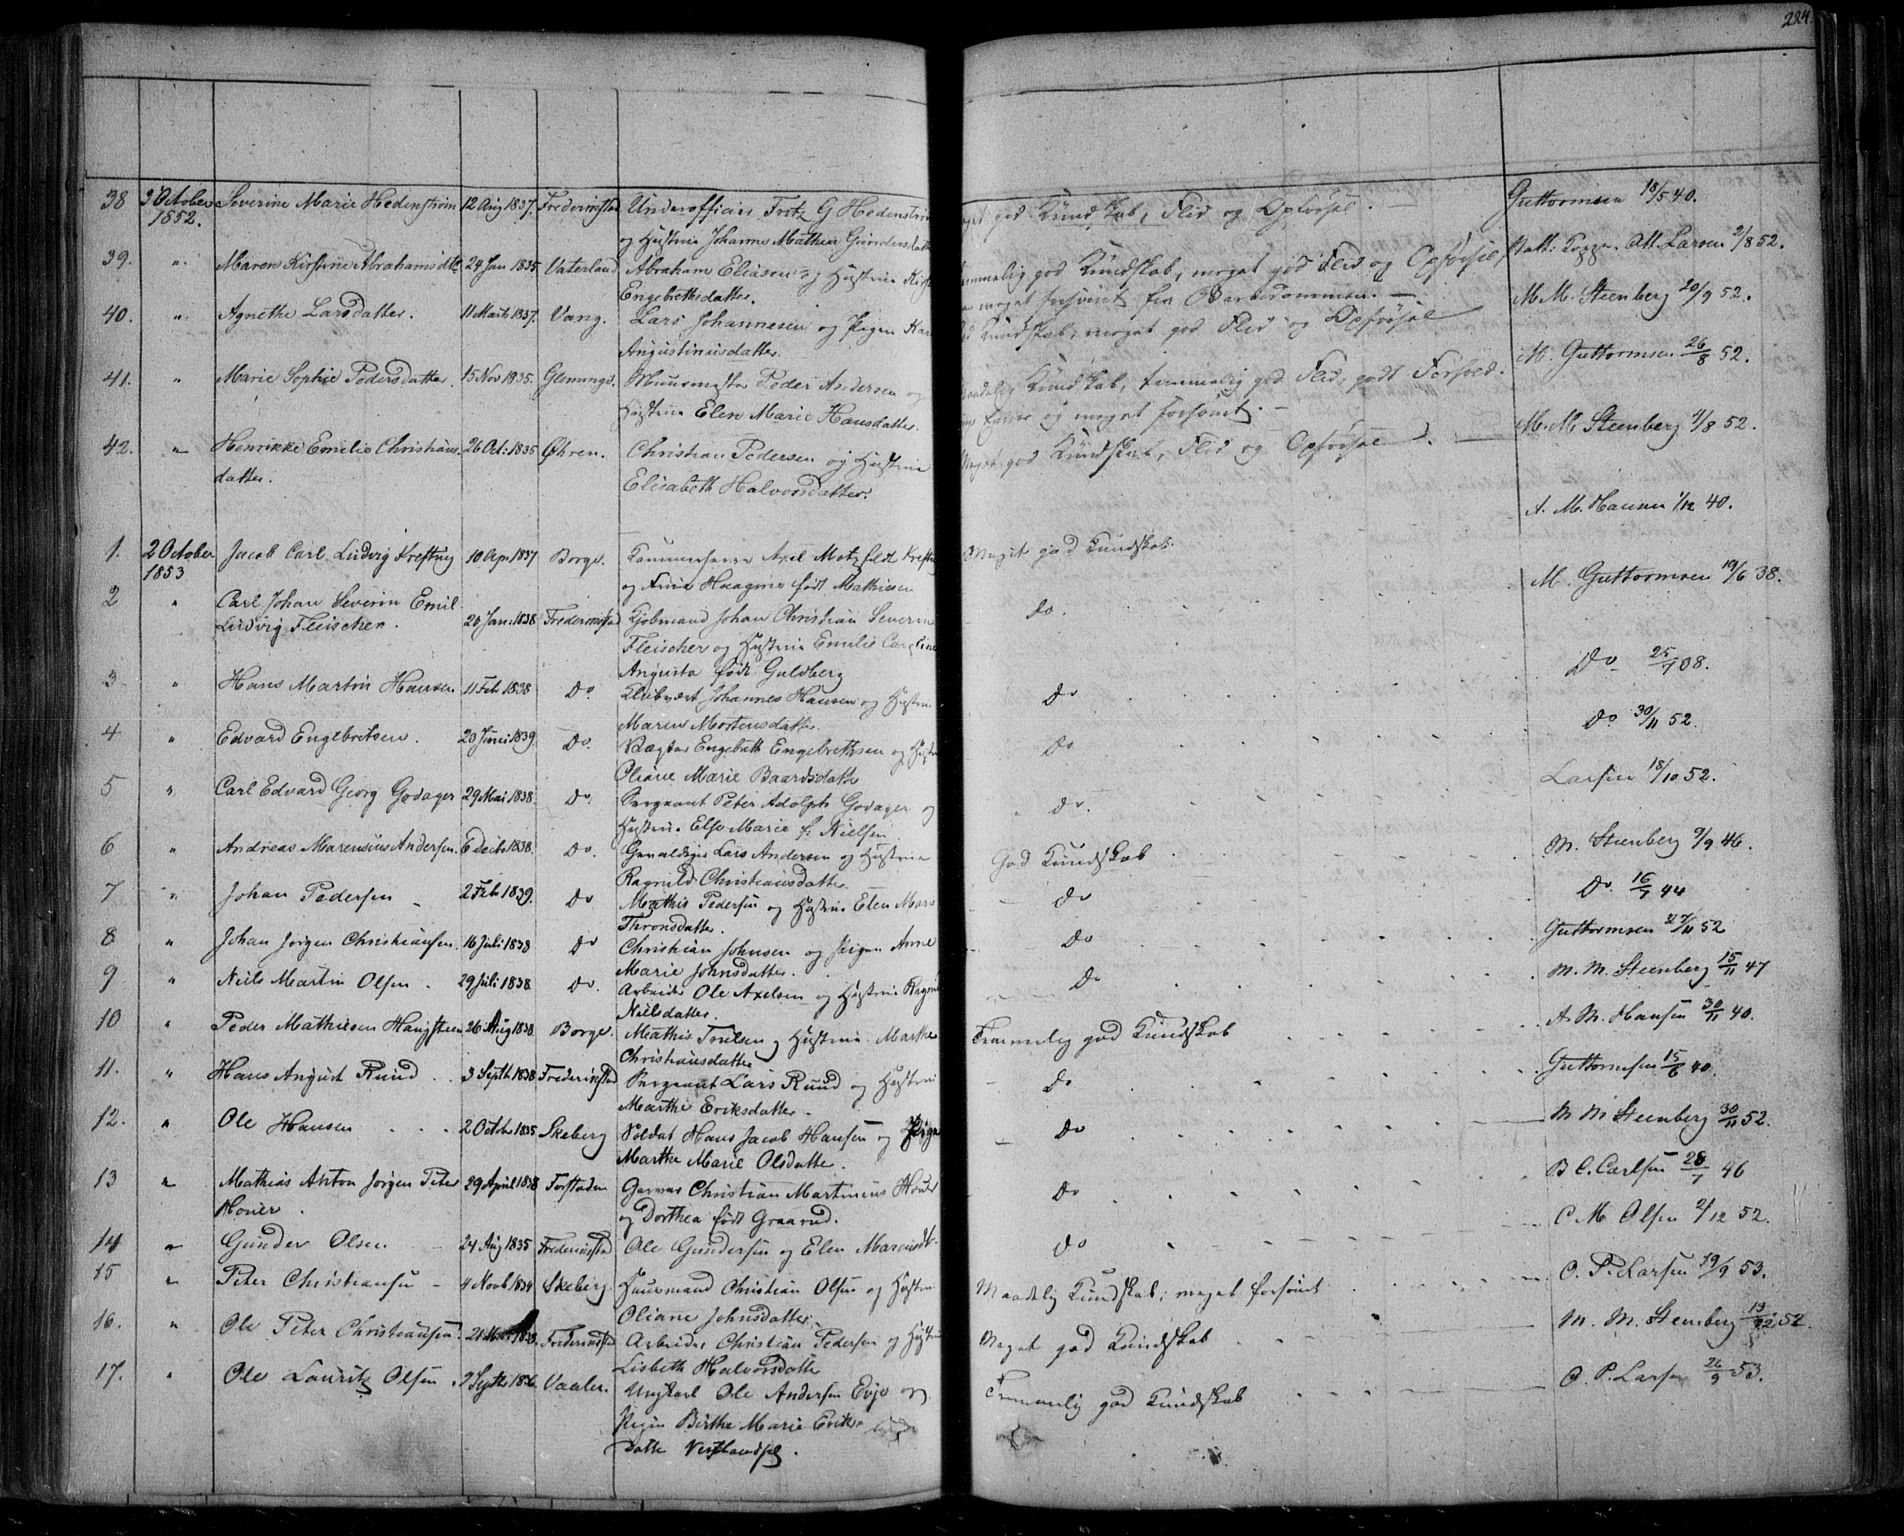 224.
38 3 October Severine Marie Hedenstrøm 12 Aug 1837. Frederikstad Underofficier Fritz G Hedenstrøm god Kundskab, Flid og Opførsel. Guttormsen 18/5 40.
1852. og Hustrue Johanne Mathea Gundersdatter
39. " Maren Kirstine Abrahamsdtr 24 Jan 1835 Vaterland Abraham Eliasen og Hustrue Kirst temmelig god Kundskab, meget god Flid og Opførsel, Larsen 2/8 52.
Engebrethsdatter. meget forsømt før
40. " Agnethe Larsdatter. 11 Marts 1837. Vang. Lars Johannesen og Pigen Kar Kundskab, meget god Flid og Opførsel M. M. Steenberg 20/9 52.
Augustinusdatter.
41. " Marie Sophie Pedersdatter. 15 Nov 1835. Glemmige. Muurmester Peder Andersen og Maadelig Kundskab, temmelig god Flid, godt Forhold. M. Guttormsen 26/8 52.
Hustrue Elen Marie Hansdatter. og meget forsømt.
42. " Henrikke Emelie Christians- 26 Oct. 1835 Øhren. Christian Pedersen og Hustrue Meget god Kundskab, Flid og Opførsel M. M. Steenberg 4/8 52.
datter. Elisabeth Halvorsdatter.
1. 2 October Jacob Carl Ludvig Krefting 10 Apr 1837 Borge. Kammerherre Axel Motzfeldt Krefti Meget god Kundskab. A. M. Hansen 1/12 40.
1853 og Frue Haagine født Mathiesen
2 " Carl Johan Severin Emil
Ludvig Fleischer. 20 Jan: 1838 Frederikstad Kjøbmand Johan Christian Severin do. M. Guttormsen 19/6 38.
Fleischer og Hustrue Emilie Caroline
Augusta født Guldberg
3 " Hans Martin Hansen 11 Feb 1838 Do. Klubvært Johannes Hansen og Hustrue do Do 25/1 08.
Maren Mortensdatter.
4 " Edvard Engebretsen. 20 Juni 1839. Do. Vægter Engebreth Engebrethsen og Hust do Do 30/11 52.
Oliane Marie Baardsdatter
5 " Carl Edvard Georg Godager 29 Mai 1838. Do. Sergeant Peter Adolph Godager og do. Larsen 18/10 52.
Hustrue Else Marie f. Nielsen
6 " Andreas Marensius Andersen. 6 Decbr 1838. Do. Gevaldiger Lars Andersen og Hustrue God Kundskab M. Steenberg 9/9 46.
Ragnild Christiansdatter
7 " Johan Pedersen 2 Feb 1839. Do Mathis Pedersen og Hustrue Elen Mare do Do. 16/7 44
Thronsdatter.
8 " Johan Jørgen Christiansen. 16 Juli 1838 do Christian Johnsen og Pigen Anne do Guttormsen 27/11 52
Marie Johnsdatter.
9 " Niels Martin Olsen. 29 Juli 1838 Do. Arbeider Ole Axelsen og Hustrue Ragnil do M. M. Steenberg 15/11 47
Nielsdatter.
10 " Peder Mathiesen Haugsteen 26 Aug 1838 Borge. Mathis Troelsen og Hustrue Marthe Temmelig god Kundskab A. M. Hansen 30/11 40.
Christiansdatter
11. " Hans August Ruud 3 Septb 1838 Frederikstad Sergeant Lars Ruud og Hustrue do Guttormsen 15/6 40.
Marthe Eriksdatter
12. " Ole Hansen 2 Octbr 1835 Skeberg Soldat Hans Jacob Hansen og Pige do M M Steenberg 30/11 52.
Marthe Marie Olsdatter.
13 " Mathias Anton Jørgen Peter 29 April 1838 Forstaden Garver Christian Martinius do B C. Carlsen 28/1 46
Høuer. og Dorthea født Graarud.
14 " Gunder Olsen 24 Aug 1835 Frederikstad Ole Gundersen og Elen Mariusdt. do C. M Olsen 2/12 52.
15 " Peter Christiansen 4 Novb 1834 Skeberg. Huusmand Christian Olsen og Hustrue Maadelig Kundskab; meget forsømt O. P. Larsen 19/9 53.
Oliane Johnsdatter.
16. " Ole Peter Christiansen. 21 Frederikstad Arbeider Christian Pedersen og Hustrue Meget god Kundskab M. M. Steenberg 13/12 52.
Lisbeth Halvorsdatter
17. " Ole Lauritz Olsen. Septb Vaaler. Ungkarl Ole Andersen Evje og Temmelig god Kundskab O. P. Larsen 26/9 53.
Pigen Birthe Marie Eriks-
datter Vestlandsp.